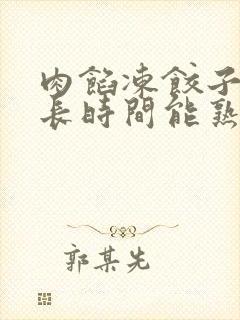 肉餡凍餃子
長時間能熟
郭某先